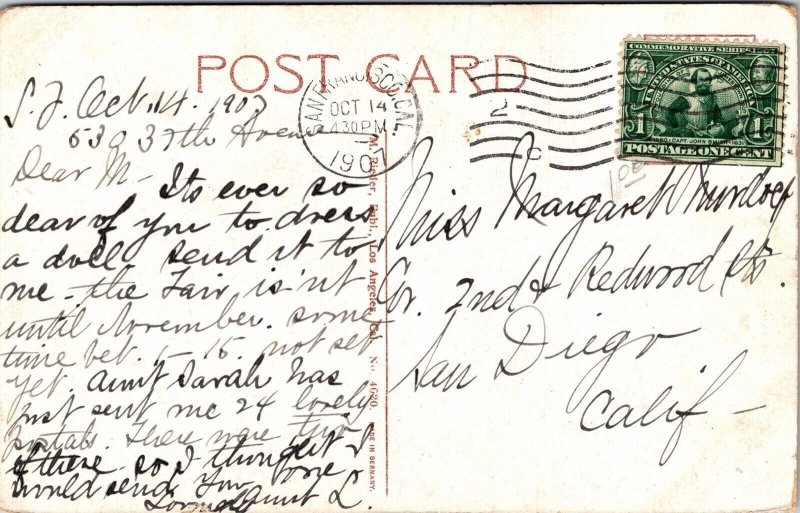 POST CARD
S. F. Oct. 14. 1907
530 37th Avenue
Dear M- Its ever so
dear of you to dress
a doll send it to
me - the Fair is'nt
until November. some
time bet. 1 - 15. not set
yet. Aunt Sarah has
just sent me 24 lovely
postals. There were two
of these so I thought I
would send you one
Aunt L.
SAN FRANCISCO, CAL.
OCT 14
430 PM
1907
2
C
COMMEMORATIVE SERIES 1907
UNITED STATES OF AMERICA
1580 CAPT. JOHN SMITH 1631
1 1
POSTAGE ONE CENT
M. Rieder, Publ., Los Angeles, Cal. No. 4620. MADE IN GERMANY.
Miss Margaret
Cor. 2nd & Redwood Sts.
San Diego
Calif -